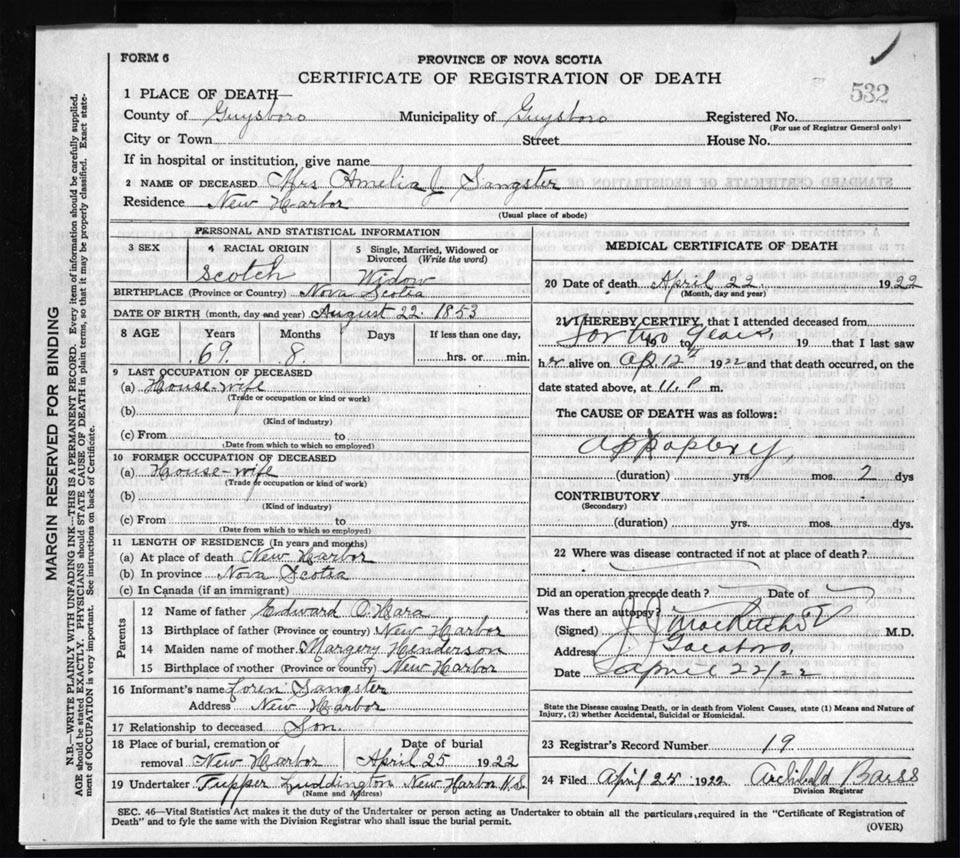 FORM 6
PROVINCE OF NOVA SCOTIA
CERTIFICATE OF REGISTRATION OF DEATH
532
1 PLACE OF DEATH—
County of Guysboro Municipality of Guysboro Registered No.
(For use of Registrar General only)
City or Town Street House No.
If in hospital or institution, give name
2 NAME OF DECEASED Mrs Amelia J. Sangster
Residence New Harbor
(Usual place of abode)
PERSONAL AND STATISTICAL INFORMATION
3 SEX 4 RACIAL ORIGIN 5 Single, Married, Widowed or Divorced (Write the word)
Scotch Widow
BIRTHPLACE (Province or Country) Nova Scotia
DATE OF BIRTH (month, day and year) August 22. 1853
8 AGE Years Months Days If less than one day,
69. 8 hrs. or min.
9 LAST OCCUPATION OF DECEASED
(a) House-wife
(Trade or occupation or kind of work)
(b)
(Kind of industry)
(c) From to
(Date from which to which so employed)
10 FORMER OCCUPATION OF DECEASED
(a) House-wife
(Trade or occupation or kind of work)
(b)
(Kind of industry)
(c) From to
(Date from which to which so employed)
11 LENGTH OF RESIDENCE (In years and months)
(a) At place of death New Harbor
(b) In province Nova Scotia
(c) In Canada (if an immigrant)
Parents
12 Name of father Edward O'Hara
13 Birthplace of father (Province or country) New Harbor
14 Maiden name of mother Margery Henderson
15 Birthplace of mother (Province or country) New Harbor
16 Informant's name Loren Sangster
Address New Harbor
17 Relationship to deceased Son.
18 Place of burial, cremation or removal New Harbor Date of burial April 25 1922
19 Undertaker Tupper Luddington New Harbor N.S.
(Name and Address)
MEDICAL CERTIFICATE OF DEATH
20 Date of death April 22. 1922
(Month, day and year)
21 I HEREBY CERTIFY, that I attended deceased from
For two years, 19 to 19 that I last saw
her alive on Ap. 12th 1922 and that death occurred, on the
date stated above, at 11. P m.
The CAUSE OF DEATH was as follows:
(duration) yrs. mos. 2 dys
CONTRIBUTORY
(Secondary)
(duration) yrs. mos. dys.
22 Where was disease contracted if not at place of death?
Did an operation precede death? Date of
Was there an autopsy?
(Signed) M.D.
Address
Date April 22/22
State the Disease causing Death, or in death from Violent Causes, state (1) Means and Nature of
Injury, (2) whether Accidental, Suicidal or Homicidal.
23 Registrar's Record Number 19
24 Filed April 25 1922 Archibald Barss
Division Registrar
SEC. 46—Vital Statistics Act makes it the duty of the Undertaker or person acting as Undertaker to obtain all the particulars required in the "Certificate of Registration of
Death" and to fyle the same with the Division Registrar who shall issue the burial permit.
(OVER)
MARGIN RESERVED FOR BINDING
N.B.—WRITE PLAINLY WITH UNFADING INK—THIS IS A PERMANENT RECORD. Every item of information should be carefully supplied.
AGE should be stated EXACTLY. PHYSICIANS should STATE CAUSE OF DEATH in plain terms, so that it may be properly classified. Exact statement of OCCUPATION is very important. See instructions on back of Certificate.